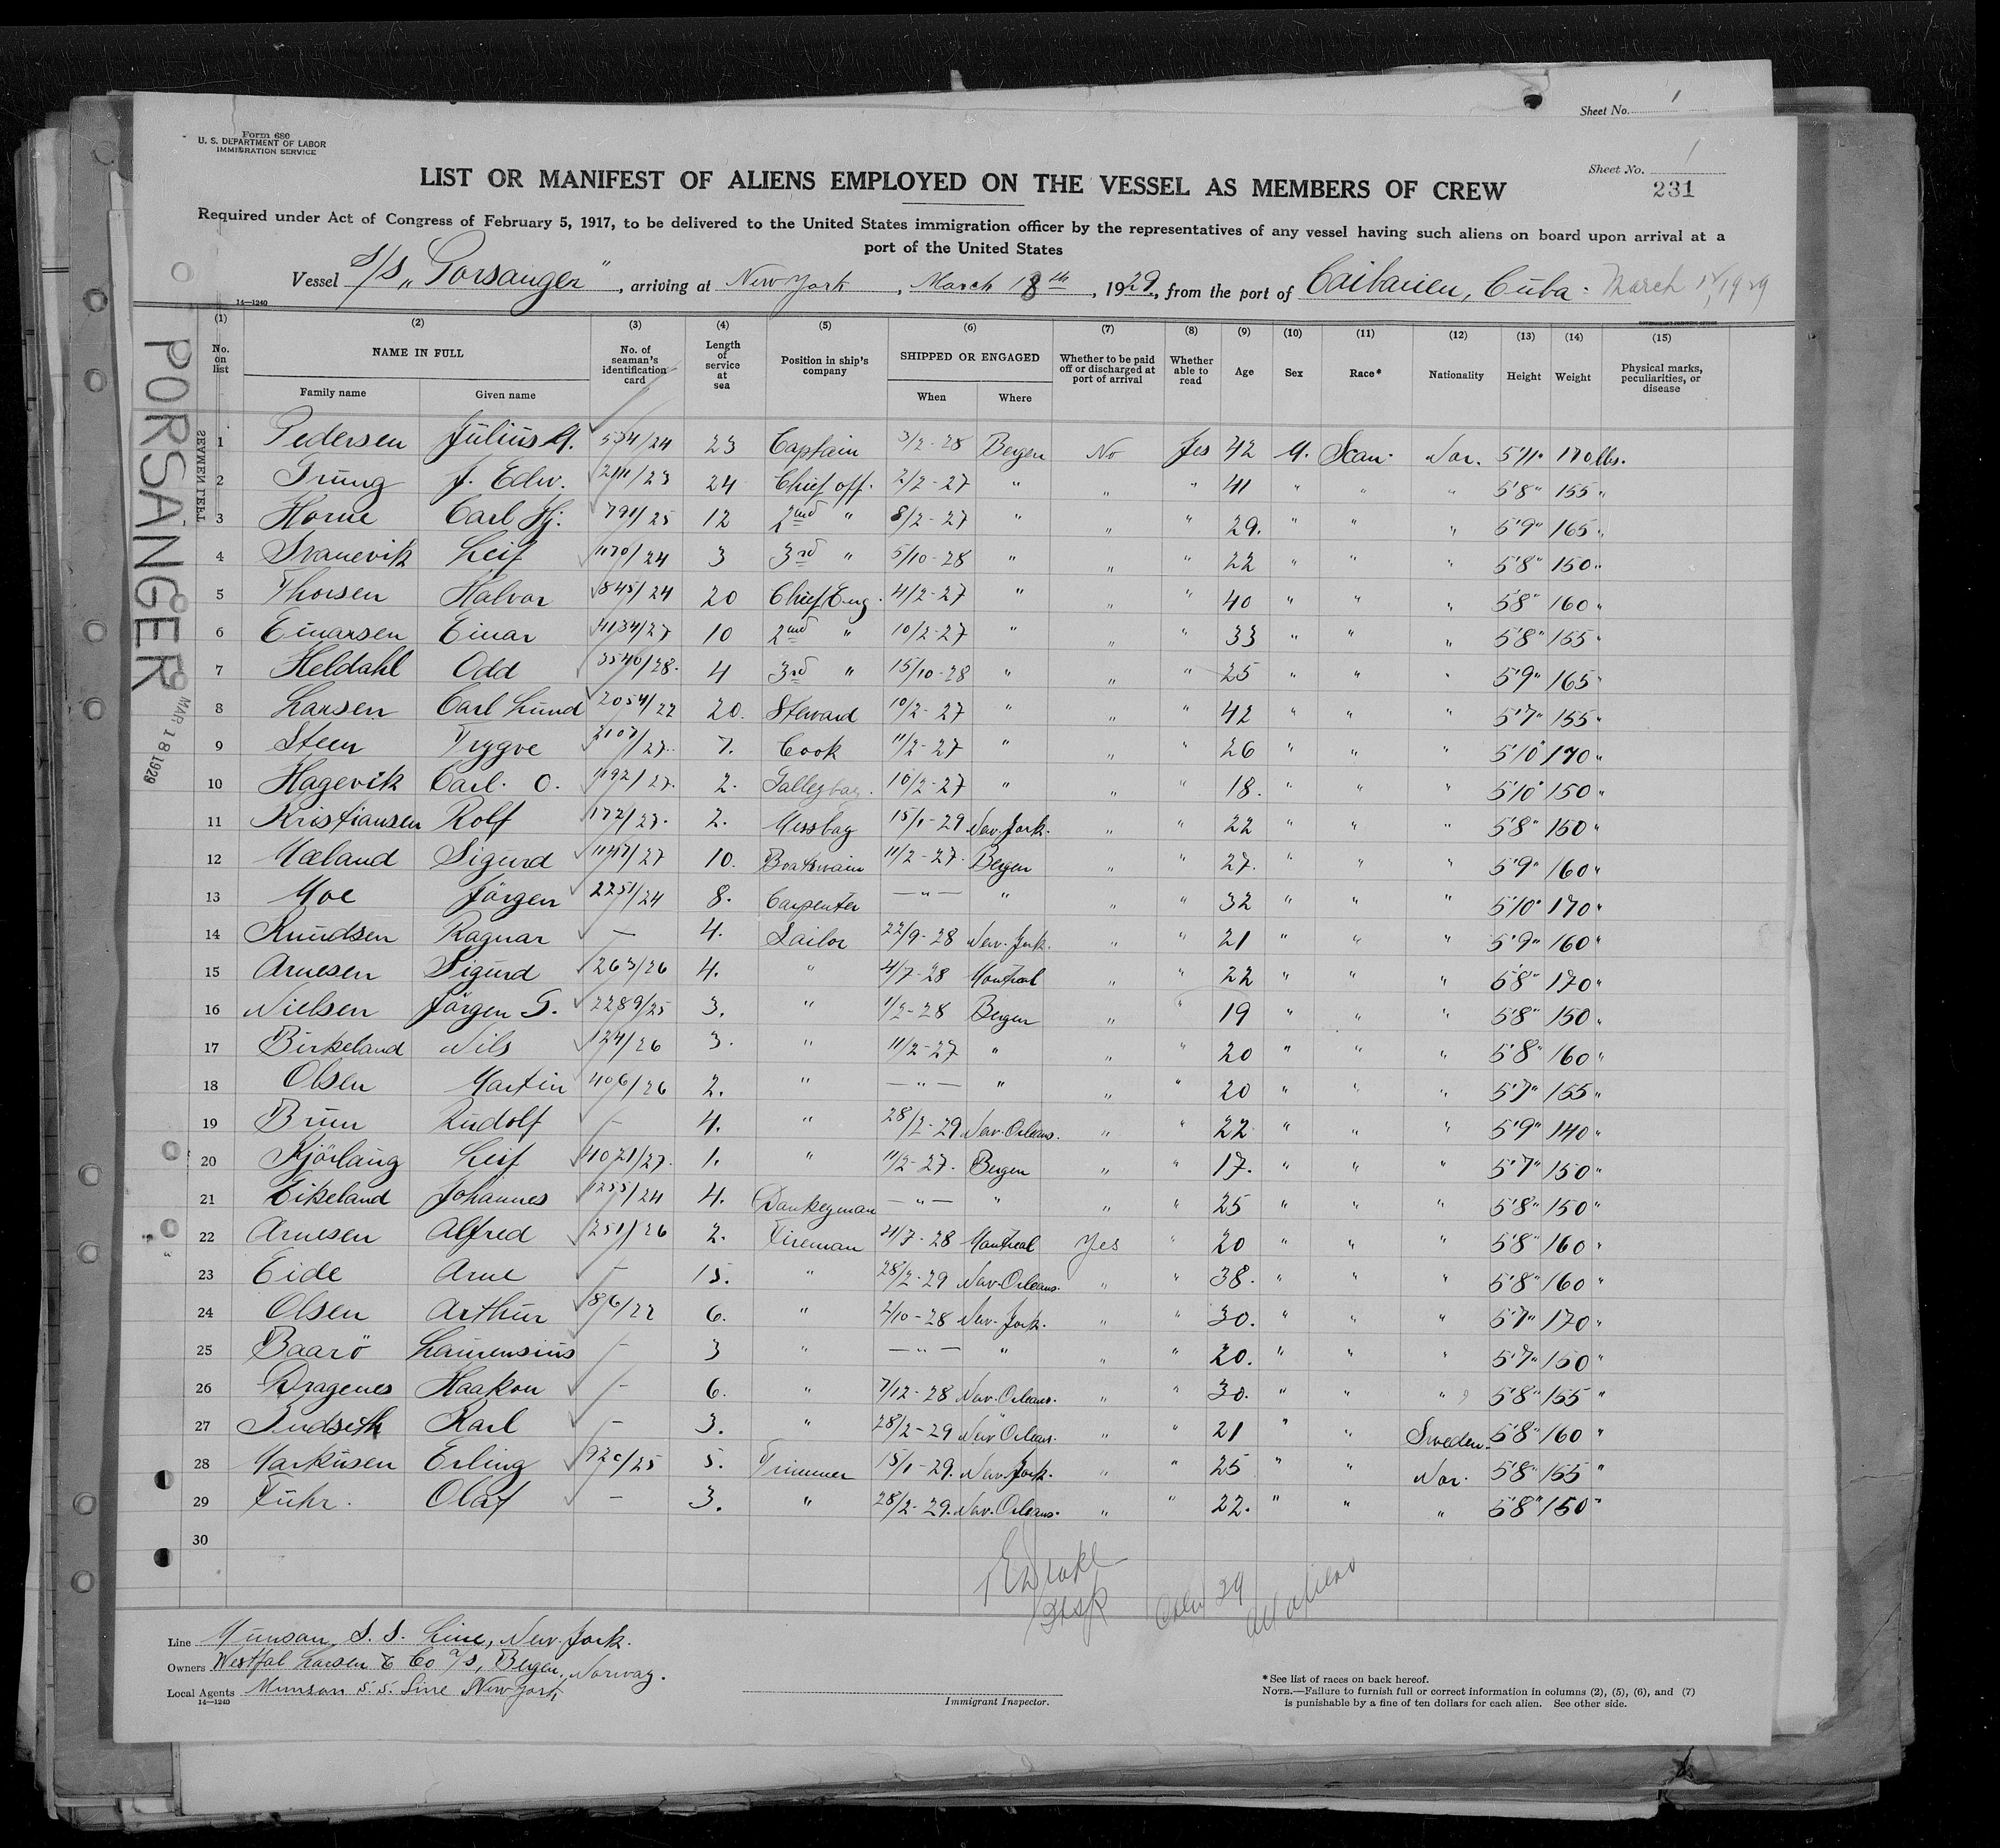 Sheet No. 1
Form 680
U. S. DEPARTMENT OF LABOR
IMMIGRATION SERVICE
Sheet No. 1
231
LIST OR MANIFEST OF ALIENS EMPLOYED ON THE VESSEL AS MEMBERS OF CREW
Required under Act of Congress of February 5, 1917, to be delivered to the United States immigration officer by the representatives of any vessel having such aliens on board upon arrival at a
port of the United States
Vessel S/S „Porsanger", arriving at New York, March 18th, 1929, from the port of Caibarien, Cuba - March 1929
14—1240
(1) (2) (3) (4) (5) (6) (7) (8) (9) (10) (11) (12) (13) (14) (15)
No. on list NAME IN FULL No. of seaman's identification card Length of service at sea Position in ship's company SHIPPED OR ENGAGED Whether to be paid off or discharged at port of arrival Whether able to read Age Sex Race* Nationality Height Weight Physical marks, peculiarities, or disease
Family name Given name When Where
PORSANGER
MAR 18 1929
SEAMEN LEFT
1 Pedersen Julius A. 534/24 23 Captain 3/2-28 Bergen No Yes 42 M. Scan. Nor. 5'11" 170 lbs.
2 Trung J. Edw. 2411/23 24 Chief off. 2/2-27 " " " 41 " " " 5'8" 155 "
3 Horne Carl Hj. 791/25 12 2nd " 8/2-27 " " " 29. " " " 5'9" 165 "
4 Svanevik Leif 1170/24 3 3rd " 5/10-28 " " " 22 " " " 5'8" 150 "
5 Thorsen Halvor 845/24 20 Chief Eng. 4/2-27 " " " 40 " " " 5'8" 160 "
6 Einarsen Einar 4134/27 10 2nd " 10/2-27 " " " 33 " " " 5'8" 155 "
7 Heldahl Odd 3540/28. 4 3rd " 15/10-28 " " " 25 " " " 5'9" 165 "
8 Larsen Carl Lund 2054/22 20. Steward 10/2-27 " " " 42 " " " 5'7" 155 "
9 Steen Tryggve 2107/27. 7. Cook 11/2-27 " " " 26 " " " 5'10" 170 "
10 Hagevik Carl. O. 1192/27. 2. Galleyboy. 10/2-27 " " " 18. " " " 5'10" 150 "
11 Kristiansen Rolf 172/27. 2. Messboy 15/1-29 New-York. " " 22 " " " 5'8" 150 "
12 Mæland Sigurd 1147/27 10. Boatswain 11/2-27. Bergen " " 27. " " " 5'9" 160 "
13 Moe Jörgen 2251/24 8. Carpenter — " — " " " 32 " " " 5'10" 170 "
14 Knudsen Ragnar — 4. Sailor 22/9-28 New-York. " " 21 " " " 5'9" 160 "
15 Arnesen Sigurd 263/26 4. " 4/7-28 Montreal " " 22 " " " 5'8" 170 "
16 Nielsen Jörgen G. 2289/25 3. " 1/2-28 Bergen " " 19 " " " 5'8" 150 "
17 Birkeland Nils 124/26 3. " 11/2-27 " " " 20 " " " 5'8" 160 "
18 Olsen Martin 406/26 2. " — " — " " " 20 " " " 5'7" 155 "
19 Brun Rudolf — 4. " 28/2-29 New-Orleans. " " 22 " " " 5'9" 140 "
20 Kjörlaug Leif 4021/27. 1. " 11/2-27. Bergen " " 17. " " " 5'7" 150 "
21 Eikeland Johannes 1255/24 4. Dankeyman — " — " " " 25 " " " 5'8" 150 "
22 Arnesen Alfred 251/26 2. Fireman 4/7-28 Montreal Yes " 20 " " " 5'8" 160 "
23 Eide Arne — 15. " 28/2-29 New-Orleans. " " 38. " " " 5'8" 160 "
24 Olsen Arthur 86/22 6. " 2/10-28 New-York. " " 30. " " " 5'7" 170 "
25 Baarö Laurensius — 3 " — " — " " " 20. " " " 5'7" 150 "
26 Dragenes Haakon — 6. " 7/12-28 New-Orleans. " " 30. " " " 5'8" 155 "
27 Indseth Karl — 3. " 28/2-29 New Orleans. " " 21 " " Sweden. 5'8" 160 "
28 Markusen Erling 920/25 5. Trimmer 15/1-29. New-York. " " 25 " " Nor. 5'8" 155 "
29 Führ. Olaf — 3. " 28/2-29. New-Orleans. " " 22. " " " 5'8" 150 "
30
29 All aliens
Line Munson S. S. Line, New-York.
Owners Westfal Larsen & Co A/S, Bergen, Norway.
Local Agents Munson S.S. Line New York
14—1240
Immigrant Inspector.
*See list of races on back hereof.
NOTE.—Failure to furnish full or correct information in columns (2), (5), (6), and (7)
is punishable by a fine of ten dollars for each alien. See other side.